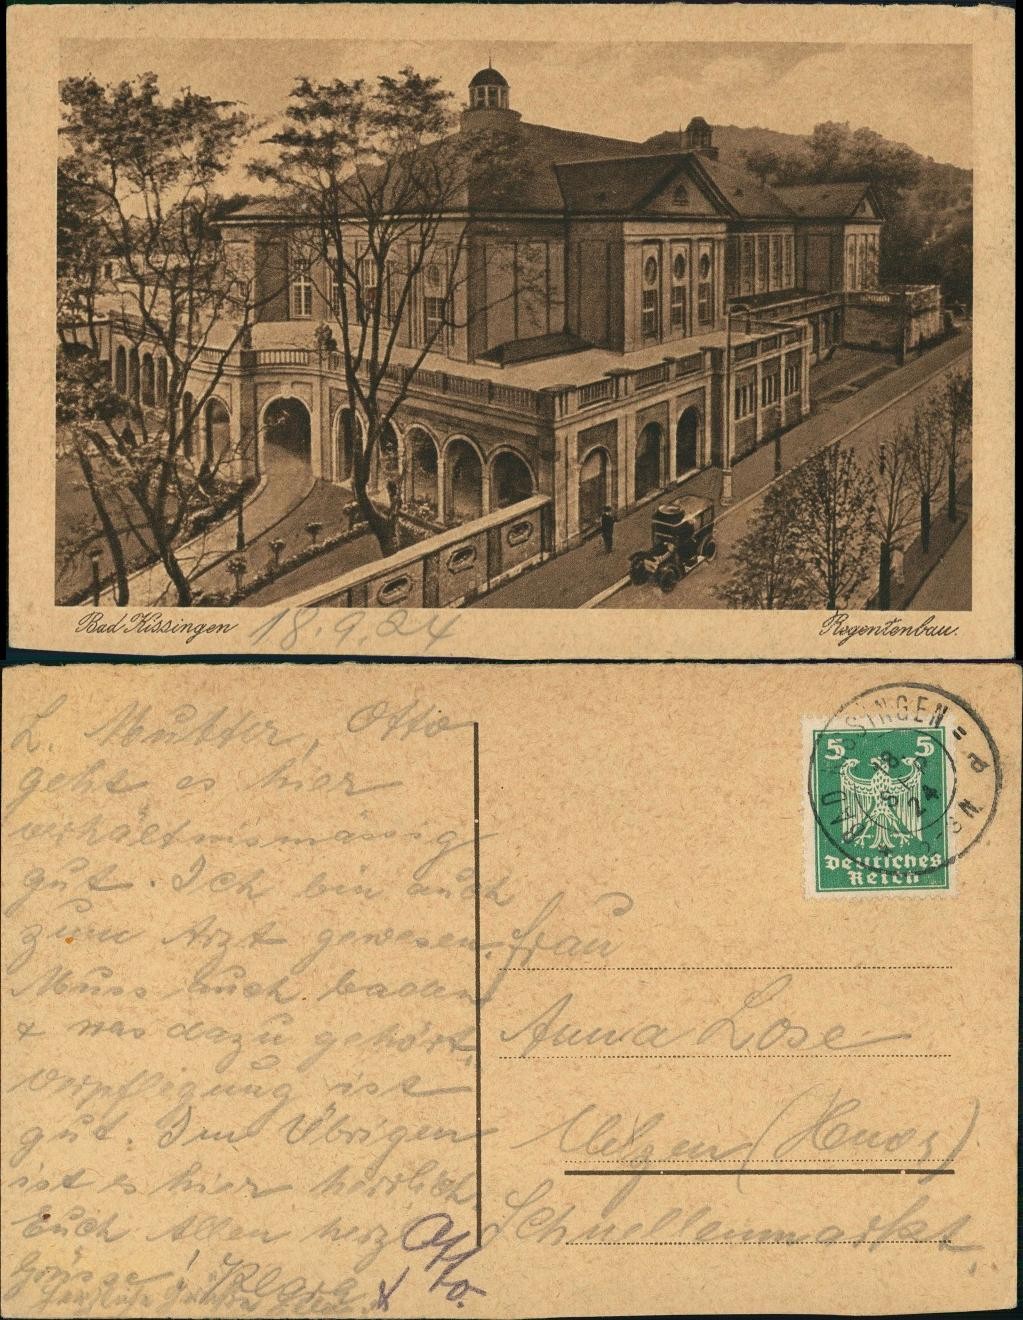 Bad Kissingen 18.9.24 Regentenbau.
L. Mutter, Otto
geht es hier
verhältnismässig
gut. Ich bin auch
zum Arzt gewesen.
Muss auch baden
& was dazu gehört.
Verpflegung ist
gut. Im Übrigen
ist es hier herrlich
Euch Allen herzl
Grüsse!
Herzliche
Otto.
BAD KISSINGEN
18 SEP 24
5 5
Deutsches
Reich
Frau
Anna Lose
Uelzen (Hnvr)
Schnellenmarkt.